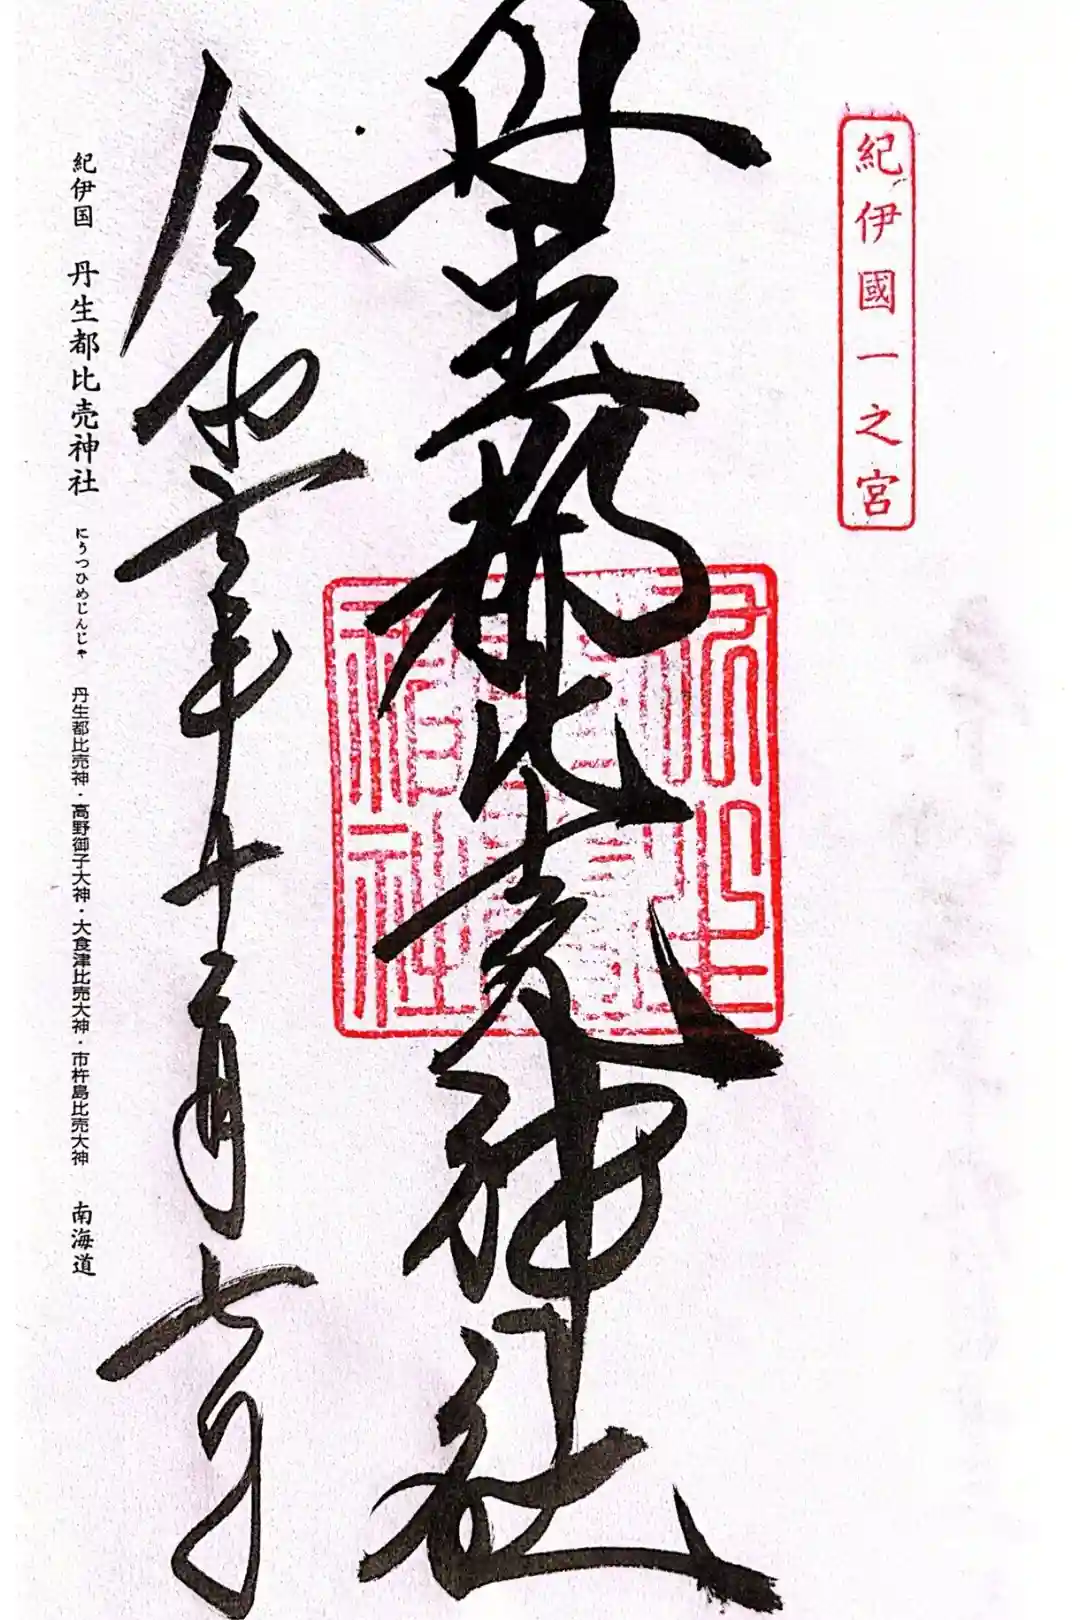 紀伊國一之宮
丹生都比売神社
令和六年十二月七日
紀伊国 丹生都比売神社 にうつひめじんじゃ 丹生都比売神・高野御子大神・大食津比売大神・市杵島比売大神 南海道